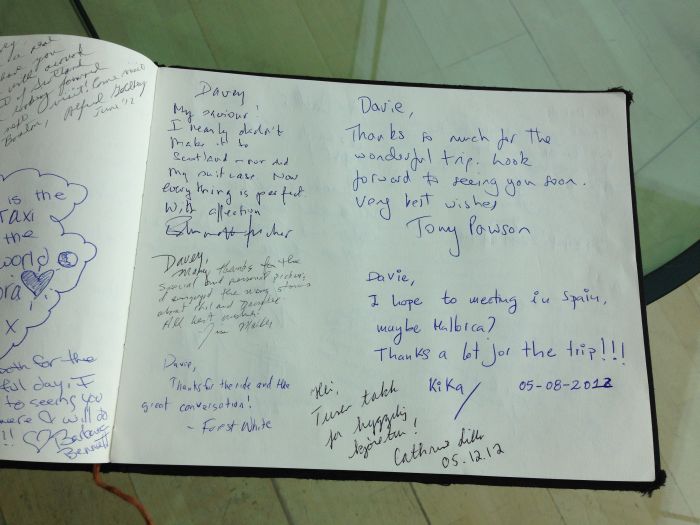 have you
with
Scotland
looking forward
visit! Come visit
Boston,
June '12
is the
Taxi
the
world
x
for the
ful day. I
to seeing you
& will do
!! Barbara
Bennett
Davey
My saviour!
I nearly didn't
make it to
Scotland - nor did
my suitcase. Now
everything is perfect
With affection
Davey,
Many thanks for the
special and personal
I enjoyed the stories
about
All best wishes!
Davie,
Thanks for the ride and the
great conversation!
- Forest White
Davie,
Thanks so much for the
wonderful trip. Look
forward to seeing you soon.
Very best wishes
Tony Pawson
Davie,
I hope to meeting in Spain,
maybe Mallorca?
Thanks a lot for the trip!!!
KiKa 05-08-2012
Hei,
Tusen takk
for hyggelig
kjøretur!
Cathrine
05.12.12